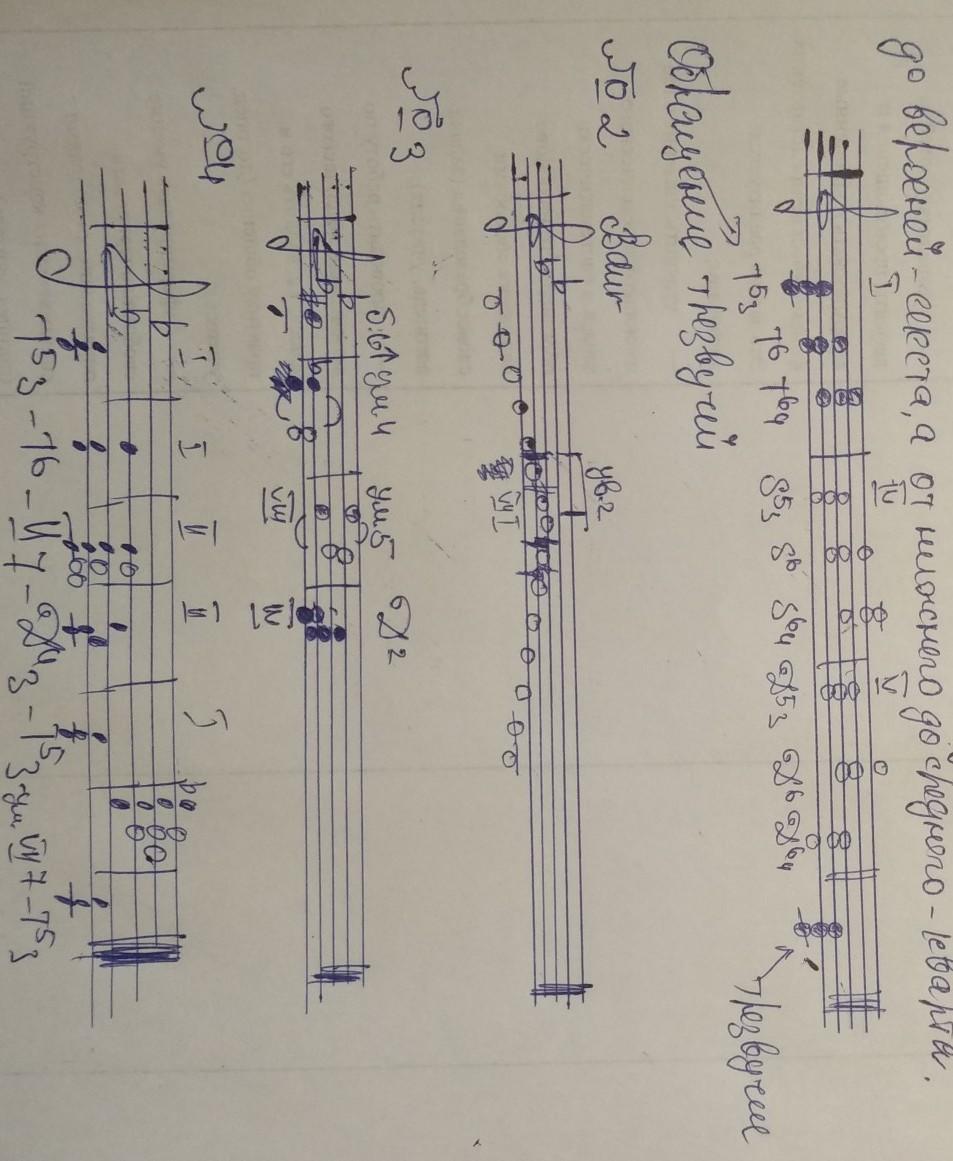 до верхней - секста, а от нижнего до среднего - кварты.
I IV V
T53 T6 T64 S53 S6 S64 D53 D6 D64
трезвучие
Обращение трезвучий
№ 2
ув.2
VI
№ 3
ум 4 ум5 D2
I VII IV
№ 4
I I II II I
T53 - T6 - II7 - D43 - T53 - ум VII7 - T53